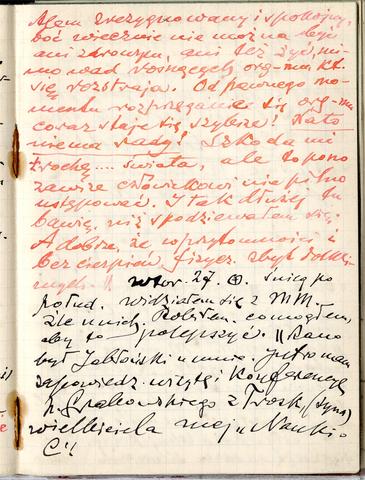 Alem zrezygnowany i spokojny,
boć wiecznie nie można być
ani zdrowym, ani też żyć, mi-
mo wad rosnących org-mu kt.
się rozstraja. Od pewnego mo-
mentu rozprzęganie się org-mu
coraz staje się szybsze! Na to
niema rady! Szkoda mi
trochę.... świata, ale to pono
zawsze człowiekowi nie pilno
ustępować. I tak dłużej tu
bawię, niż spodziewałem się.
A dobrze, że w przytomności i
bez cierpień fizycz. zbyt dotkli-
wych. || wtor. 27. śnieg po
połud. widziałem się z MM.
Źle u nich. Robiłem co mogłem,
aby to polepszyć. || Rano
był Jabłoński u mnie. Jutro mam
zapowiedz. wizytę i konferencyę
p. Grabowskiego z (syna)
wielbiciela mej Nauki.